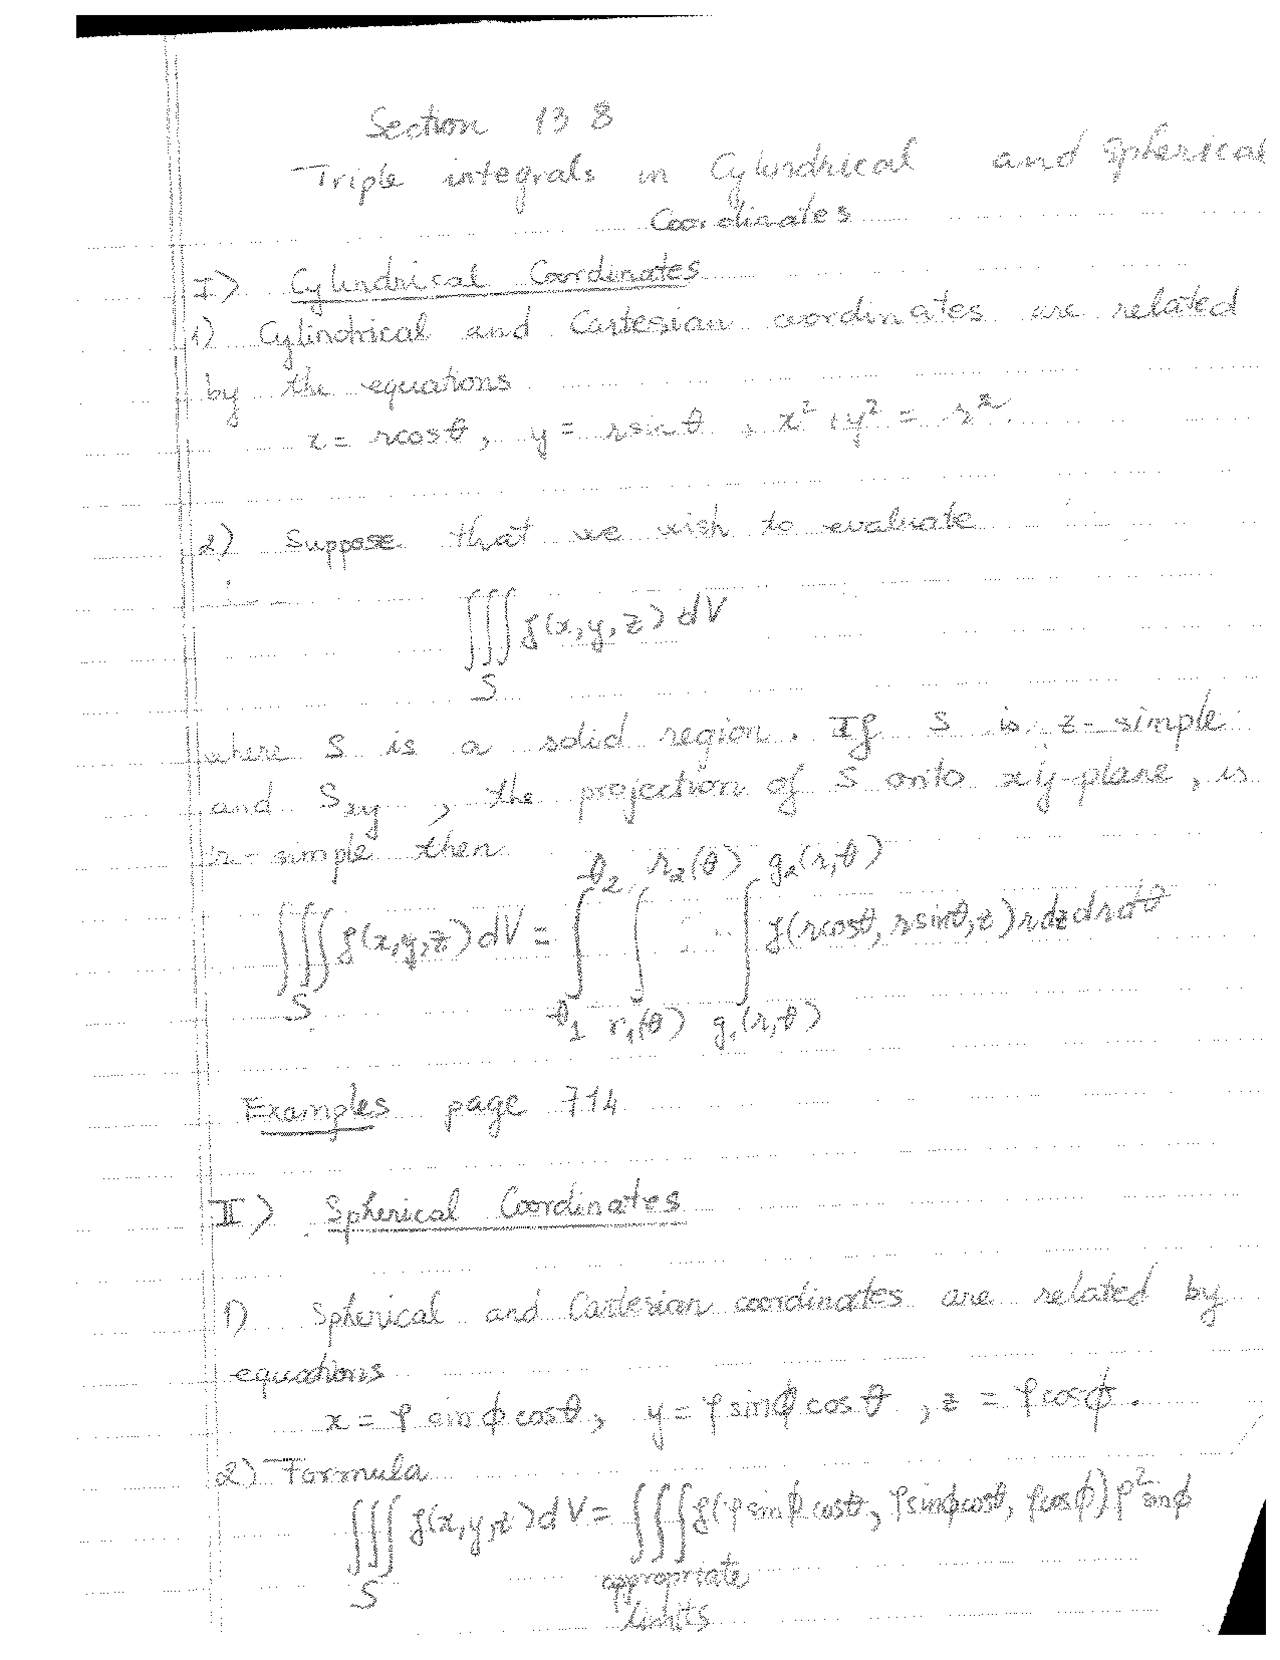 Section 13 8
Triple integrals in Cylindrical and Spherical
Coordinates
I) Cylindrical Coordinates
1) Cylindrical and Cartesian coordinates are related
by the equations
x = rcosθ, y = rsinθ, x² + y² = r².
2) Suppose that we wish to evaluate
∫∫∫ f(x,y,z) dV
S
where S is a solid region. If S is z-simple
and Sxy, the projection of S onto xy-plane, is
r-simple then
θ2 r2(θ) g2(r,θ)
∫∫∫ f(x,y,z) dV = ∫ ∫ ∫ f(rcosθ, rsinθ, z) r dz dr dθ
S θ1 r1(θ) g1(r,θ)
Examples page 714
II) Spherical Coordinates
1) Spherical and Cartesian coordinates are related by
equations
x = ρ sinϕ cosθ, y = ρ sinϕ cosθ, z = ρ cosϕ.
2) Formula
∫∫∫ f(x,y,z) dV = ∫∫∫ f(ρ sinϕ cosθ, ρ sinϕ cosθ, ρ cosϕ) ρ² sinϕ
S appropriate
limits